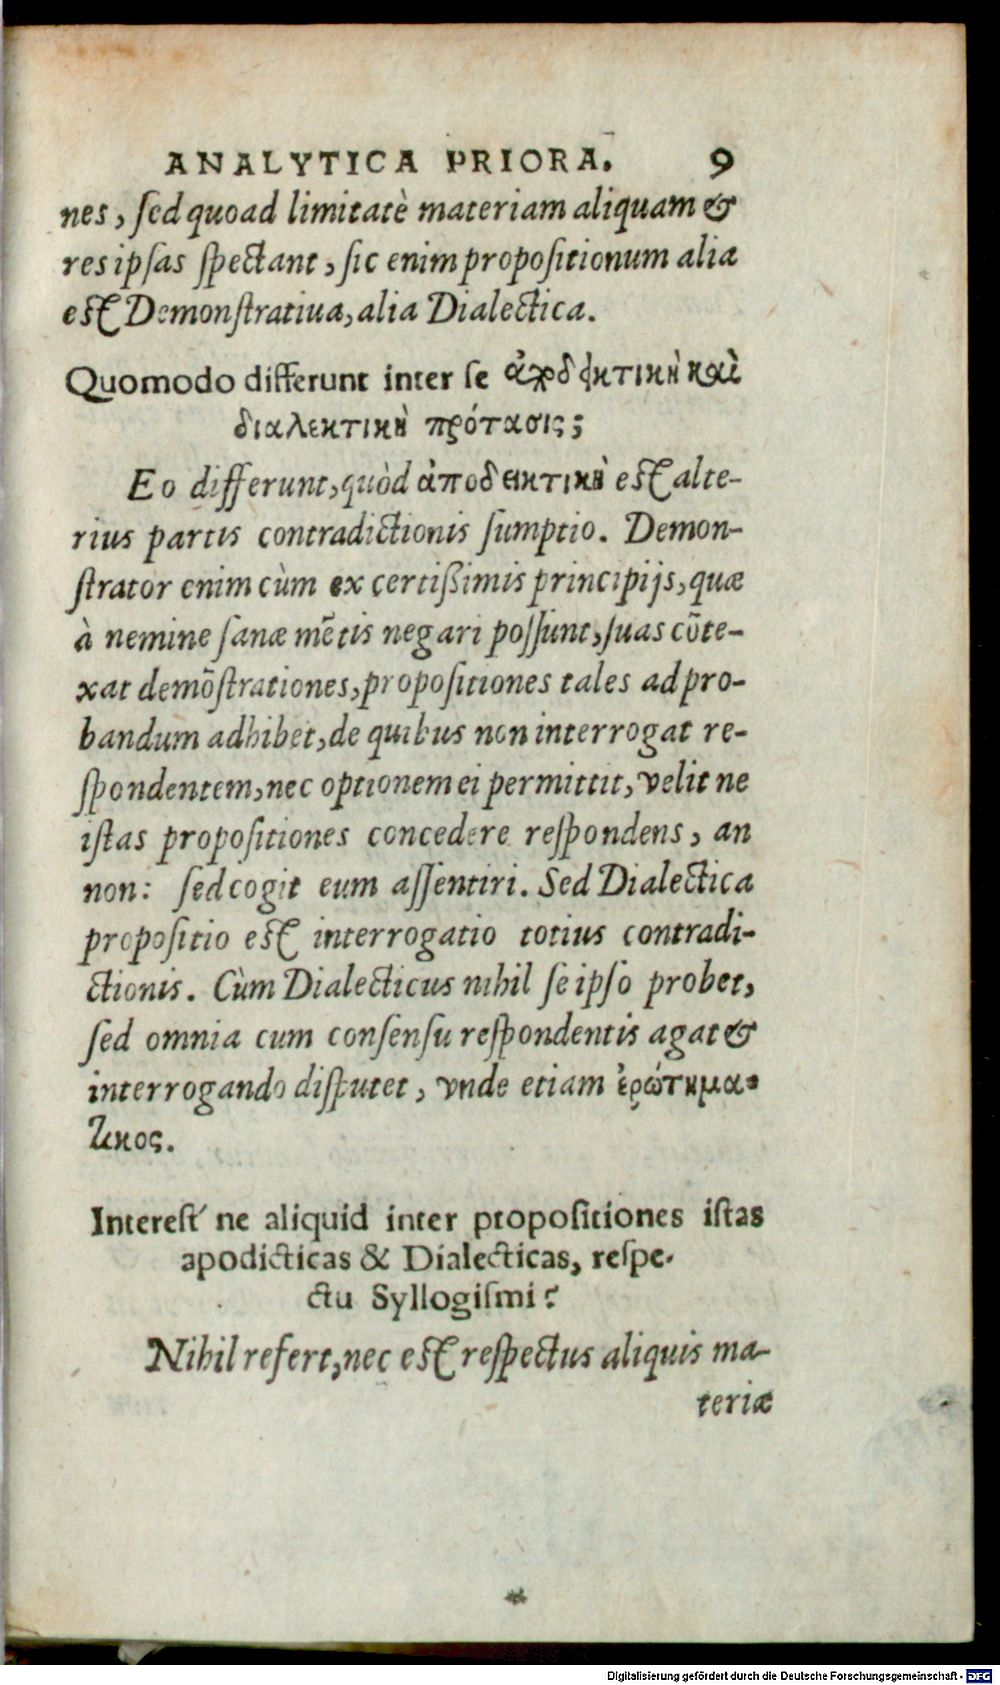 ANALYTICA PRIORA. 9
nes, sed quoad limitatè materiam aliquam &
res ipsas spectant, sic enim propositionum alia
est Demonstratiua, alia Dialectica.
Quomodo differunt inter se ἀποδεικτικὴ καὶ
διαλεκτικὴ πρότασις;
Eo differunt, quòd ἀποδεικτικὴ est alte-
rius partis contradictionis sumptio. Demon-
strator enim cùm ex certißimis principijs, quæ
à nemine sanæ mẽtis negari possunt, suas cõte-
xat demõstrationes, propositiones tales ad pro-
bandum adhibet, de quibus non interrogat re-
spondentem, nec optionem ei permittit, velit ne
istas propositiones concedere respondens, an
non: sed cogit eum assentiri. Sed Dialectica
propositio est interrogatio totius contradi-
ctionis. Cùm Dialecticus nihil se ipso probet,
sed omnia cum consensu respondentis agat &
interrogando disputet, vnde etiam ἐρώτημα-
τικος.
Interest ne aliquid inter propositiones istas
apodicticas & Dialecticas, respe-
ctu Syllogismi?
Nihil refert, nec est respectus aliquis ma-
teriæ
Digitalisierung gefördert durch die Deutsche Forschungsgemeinschaft - DFG